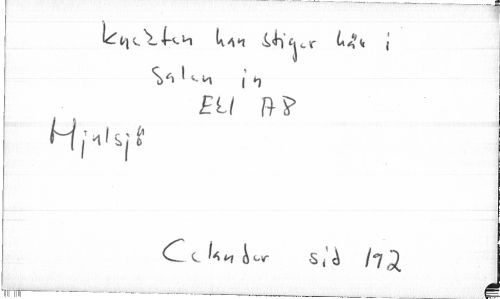 knekten han stiger här i
salen in
Ekl A8
Hjulsjö
Celander sid 192